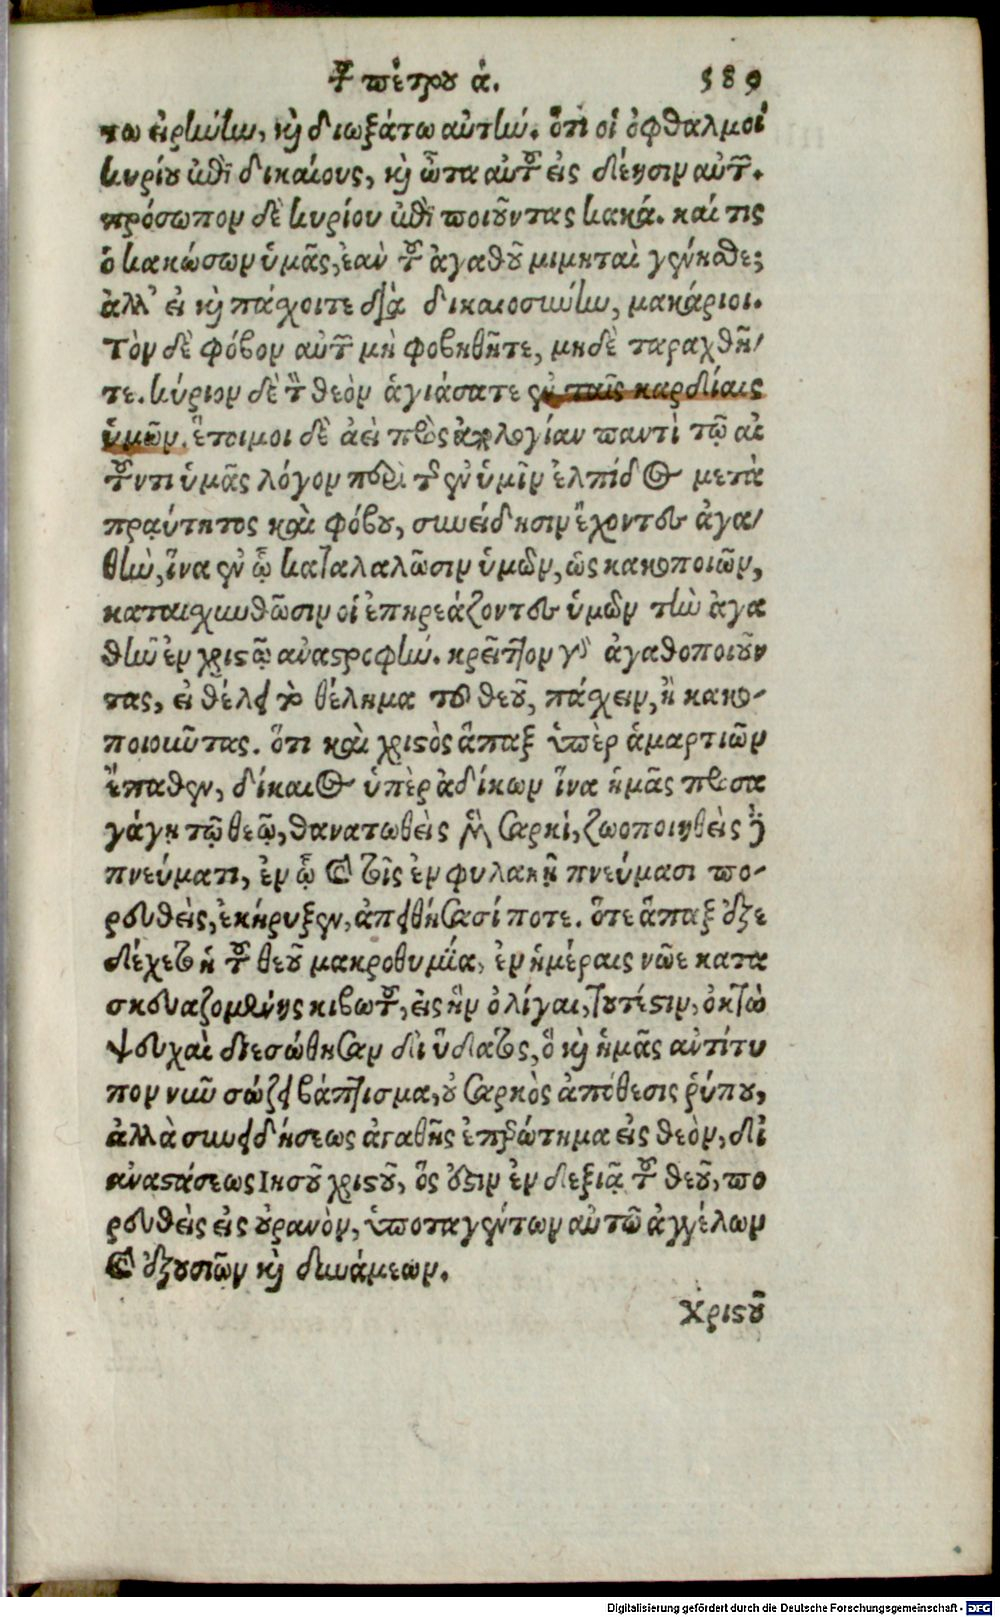 τοῦ πέτρου ά. 589
τω εἰρήνην, καὶ διωξάτω αὐτήν. ὅτι οἱ ὀφθαλμοί
κυρίου ἐπὶ δικαίους, καὶ ὦτα αὐτοῦ εἰς δέησιν αὐτῶν.
πρόσωπον δὲ κυρίου ἐπὶ ποιοῦντας κακά. καί τις
ὁ κακώσων ὑμᾶς, ἐὰν τοῦ ἀγαθοῦ μιμηταὶ γένησθε;
ἀλλ’ εἰ καὶ πάσχοιτε διὰ δικαιοσύνην, μακάριοι.
Τὸν δὲ φόβον αὐτῶν μὴ φοβηθῆτε, μηδὲ ταραχθῆ/
τε. κύριον δὲ τὸν θεὸν ἁγιάσατε ἐν ταῖς καρδίαις
ὑμῶν. ἕτοιμοι δὲ ἀεὶ πρὸς ἀπολογίαν παντὶ τῷ αἰ
τοῦντι ὑμᾶς λόγον περὶ τῆς ἐν ὑμῖν ἐλπίδος μετὰ
πραΰτητος καὶ φόβου, συνείδησιν ἔχοντες ἀγα/
θὴν, ἵνα ἐν ᾧ καταλαλῶσιν ὑμῶν, ὡς κακοποιῶν,
καταισχυνθῶσιν οἱ ἐπηρεάζοντες ὑμῶν τὴν ἀγα
θὴν ἐν χριστῷ ἀναστροφήν. κρεῖττον γὰρ ἀγαθοποιοῦν
τας, εἰ θέλει τὸ θέλημα τοῦ θεοῦ, πάσχειν, ἢ κακο-
ποιοῦντας. ὅτι καὶ χριστὸς ἅπαξ ὑπὲρ ἁμαρτιῶν
ἔπαθεν, δίκαιος ὑπὲρ ἀδίκων ἵνα ἡμᾶς προσα
γάγῃ τῷ θεῷ, θανατωθεὶς μὲν σαρκὶ, ζωοποιηθεὶς δὲ
πνεύματι, ἐν ᾧ καὶ τοῖς ἐν φυλακῇ πνεύμασι πο-
ρευθεὶς, ἐκήρυξεν, ἀπειθήσασί ποτε. ὅτε ἅπαξ ἐξε
δέχετο ἡ τοῦ θεοῦ μακροθυμία, ἐν ἡμέραις νῶε κατα
σκευαζομένης κιβωτοῦ, εἰς ἣν ὀλίγαι, τουτέστιν, ὀκτὼ
ψυχαὶ διεσώθησαν δι ὕδατος, ὃ καὶ ἡμᾶς ἀντίτυ
πον νῦν σώζει βάπτισμα, οὐ σαρκὸς ἀπόθεσις ῥύπου,
ἀλλὰ συνειδήσεως ἀγαθῆς ἐπερώτημα εἰς θεὸν, δι
ἀναστάσεως Ιησοῦ χριστοῦ, ὅς ἐστιν ἐν δεξιᾷ τοῦ θεοῦ, πο
ρευθεὶς εἰς οὐρανὸν, ὑποταγέντων αὐτῷ ἀγγέλων
καὶ ἐξουσιῶν καὶ δυνάμεων.
Χριστοῦ
Digitalisierung gefördert durch die Deutsche Forschungsgemeinschaft - DFG